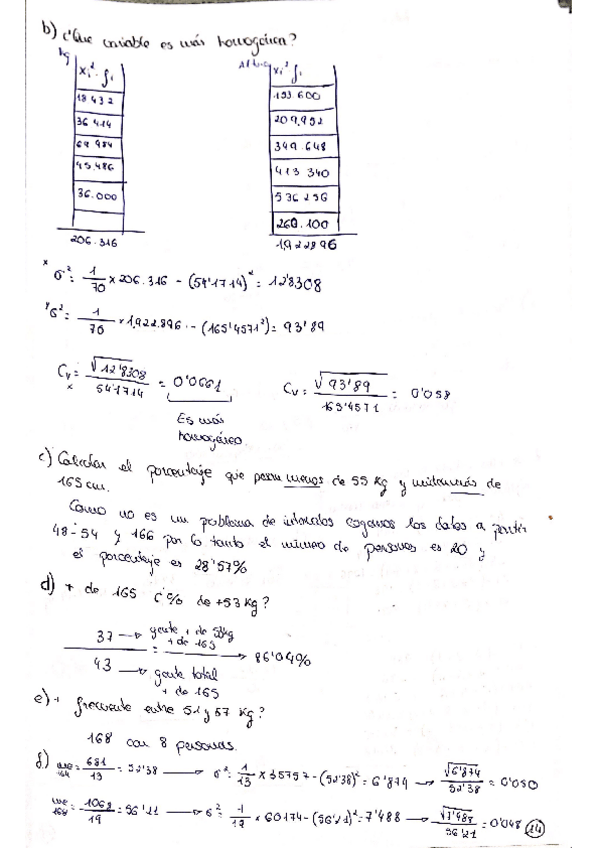 b) ¿Que variable es más homogénea?
kg
Altura
xi² · fi
xi² fi
18 432
193 600
36 414
209,952
69 984
349 · 648
45.486
413 340
36.000
536 256
260.100
206.316
1,922 896
x σ² = 1/70 × 206.316 - (54'1714)² = 12'8308
y σ² = 1/70 × 1,922.896 - (165'4571²) = 93'89
Cv x = √12'8308 / 54'1714 = 0'0661
Cv = √93'89 / 165'4571 = 0'058
Es más
homogéneo.
c) Calcular el porcentaje que pesan menos de 55 kg y miden más de
165 cm.
Como no es un problema de intervalos cogemos los datos a partir
48-54 y 166 por lo tanto el número de personas es 20 y
el porcentaje es 28'57%
d) + de 165 ¿% de +53 kg?
37 → gente + de 53kg
+ de 165
= → 86'04%
43 → gente total
+ de 165
e) + frecuente entre 51 y 57 kg?
168 con 8 personas.
f) 164 = 681/13 = 52'38 → σ² = 1/13 × 35757 - (52'38)² = 6'874 → √6'874 / 52'38 = 0'050
168 = 1068/19 = 56'21 → σ² = 1/19 × 60174 - (56'21)² = 7'488 → √7'488 / 56'21 = 0'048
14